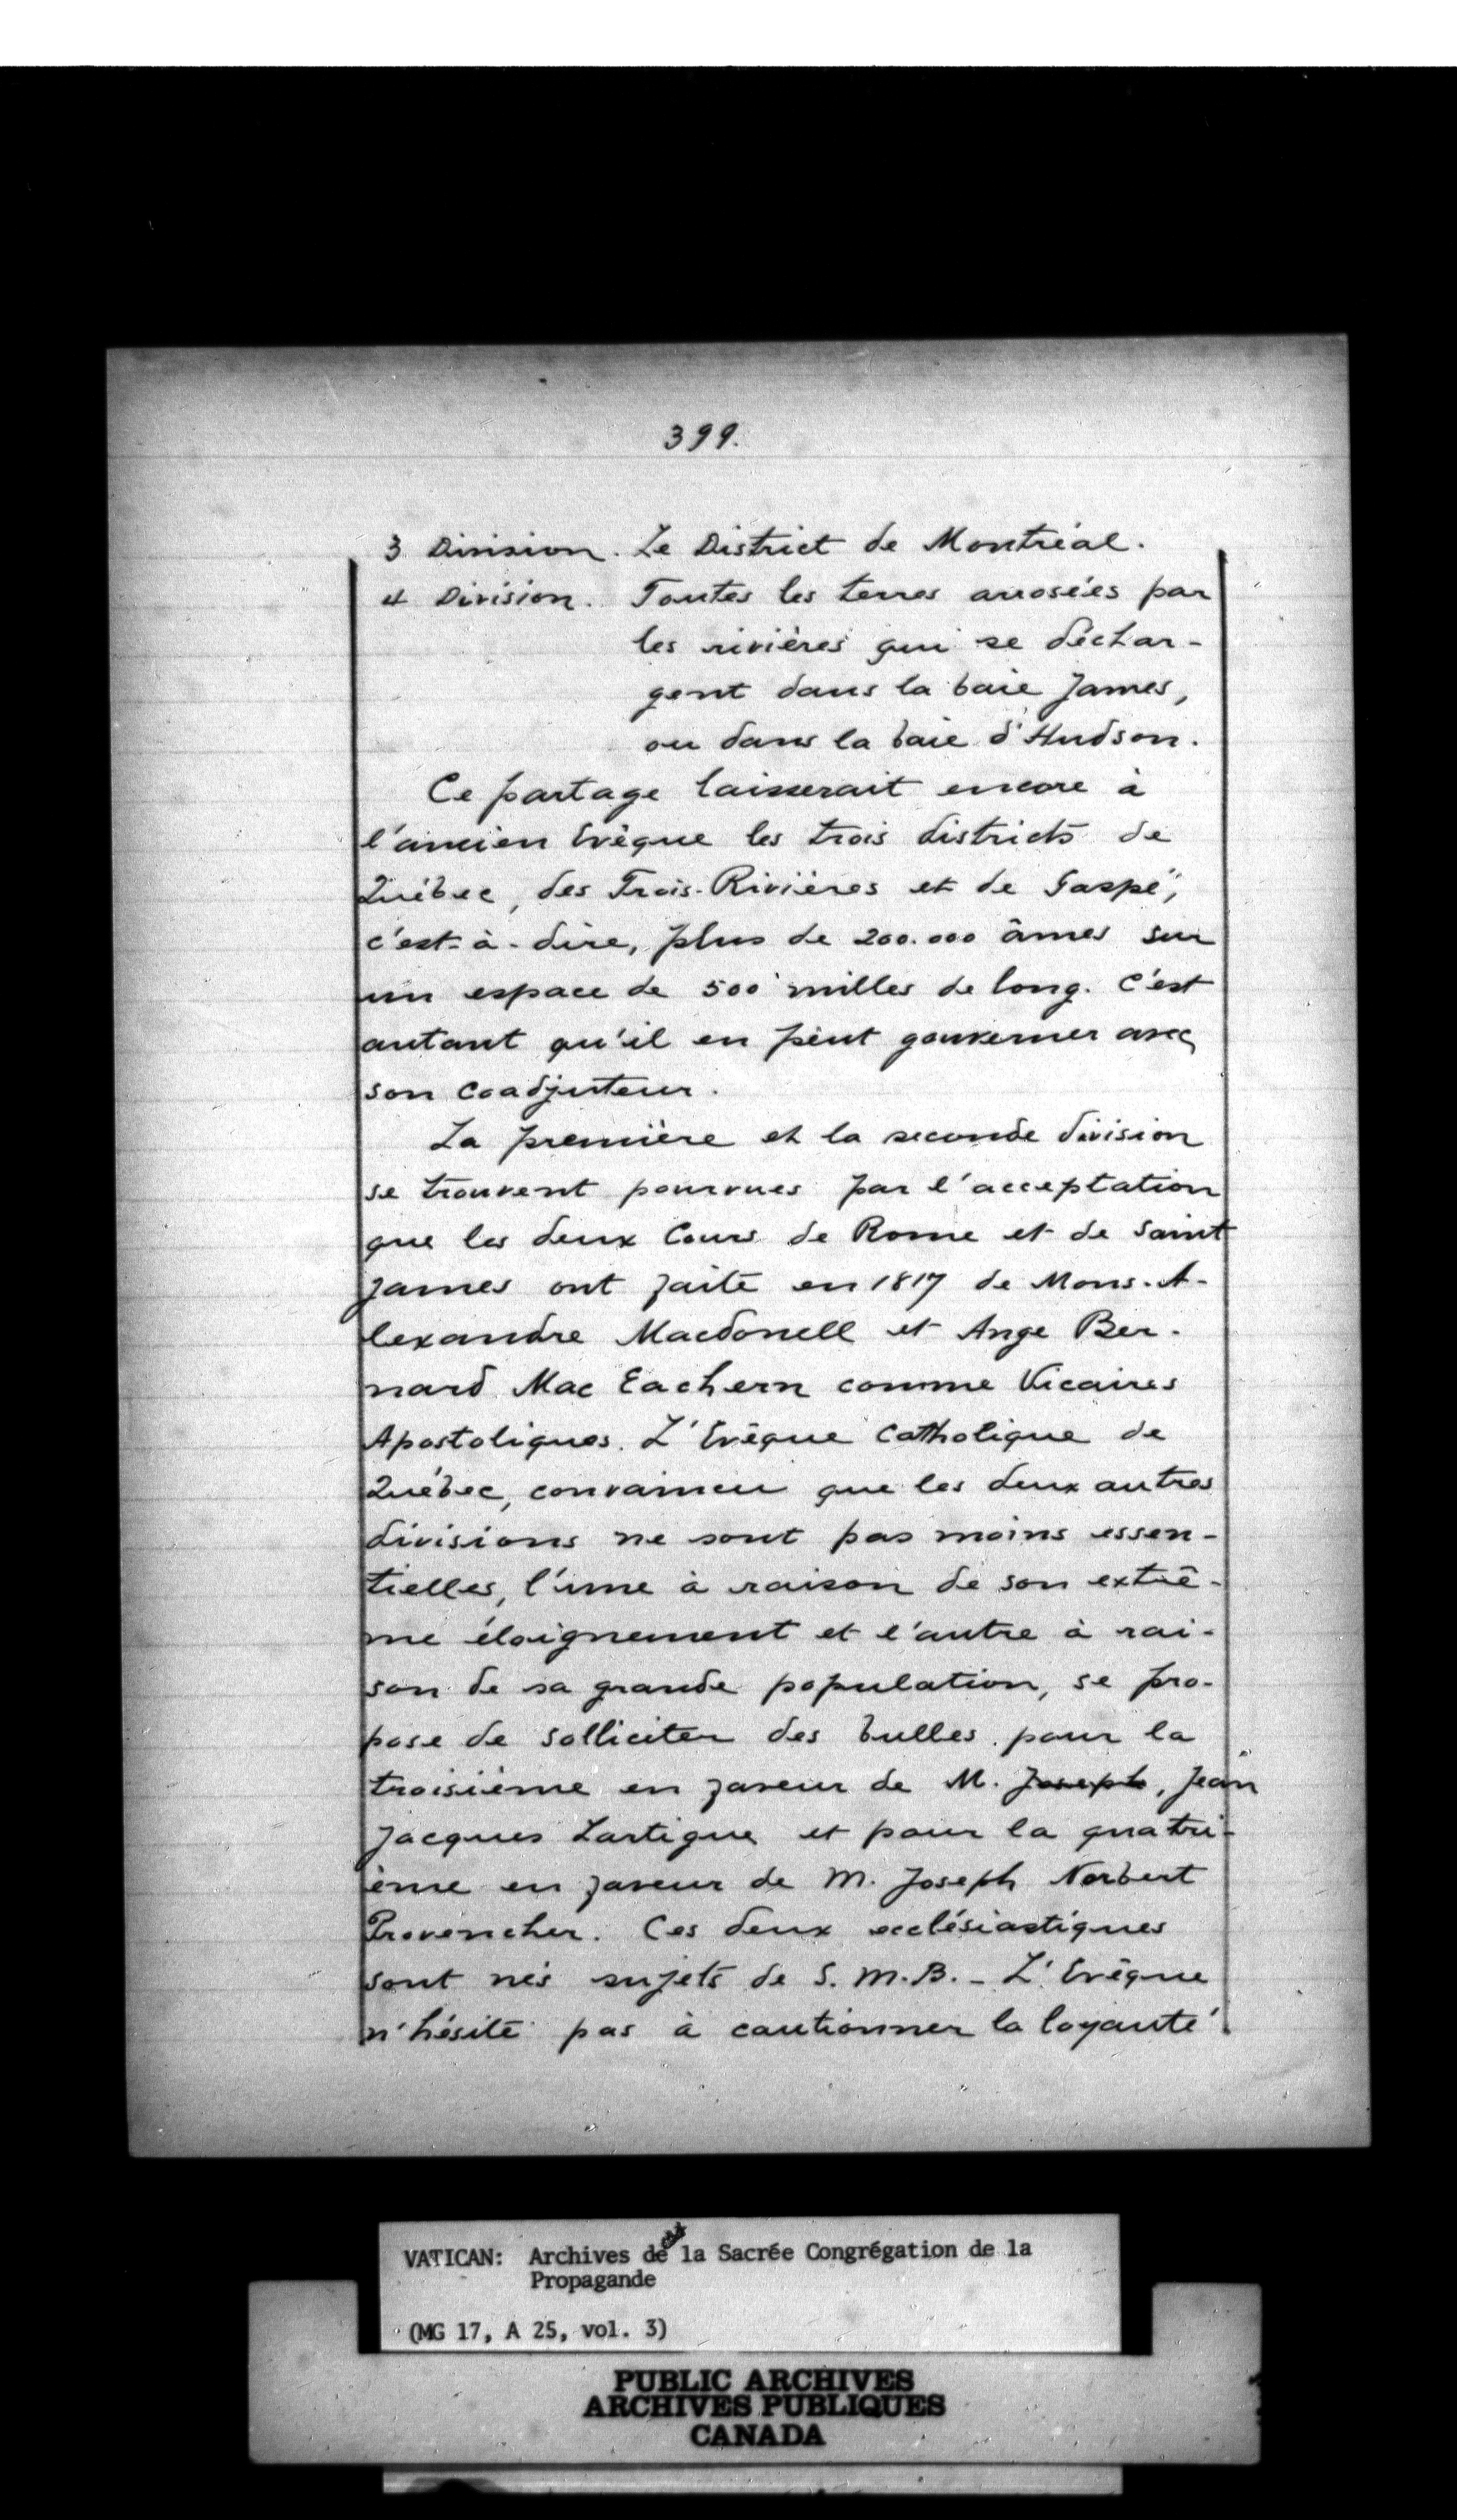 399.
3 Division. Le District de Montréal.
4 Division. Toutes les terres arrosées par
les rivières qui se déchar-
gent dans la baie James,
ou dans la baie d'Hudson.
Ce partage laisserait encore à
l'ancien Evêque les trois districts de
Québec, des Trois-Rivières et de Gaspé,
c'est-à-dire, plus de 200.000 âmes sur
un espace de 500 milles de long. C'est
autant qu'il en peut gouverner avec
son coadjuteur.
La première et la seconde division
se trouvent pourvues par l'acceptation
que les deux Cours de Rome et de Saint
James ont faite en 1817 de Mons. A-
lexandre Macdonell et Ange Ber-
nard Mac Eachern comme Vicaires
Apostoliques. L'Evêque Catholique de
Québec, convaincu que les deux autres
divisions ne sont pas moins essen-
tielles, l'une à raison de son extrê-
me éloignement et l'autre à rai-
son de sa grande population, se pro-
pose de solliciter des bulles pour la
troisième en faveur de M. Joseph, Jean
Jacques Lartigue et pour la quatri-
ème en faveur de M. Joseph Norbert
Provencher. Ces deux ecclésiastiques
sont nés sujets de S. M. B. - L'Evêque
n'hésite pas à cautionner la loyauté
VATICAN: Archives de la Sacrée Congrégation de la
Propagande
(MG 17, A 25, vol. 3)
PUBLIC ARCHIVES
ARCHIVES PUBLIQUES
CANADA